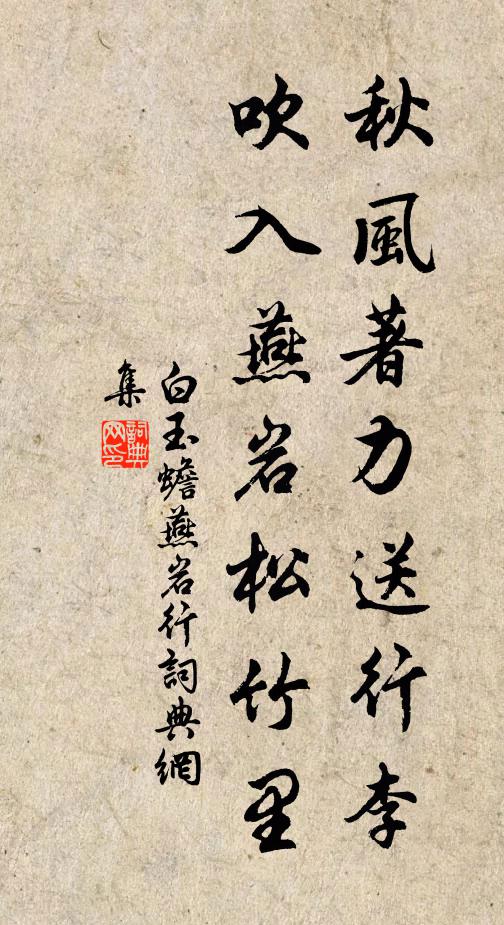 秋風著力送行李
吹入燕岩松竹里
白玉蟾燕岩行詞典網
集
詞典
网印